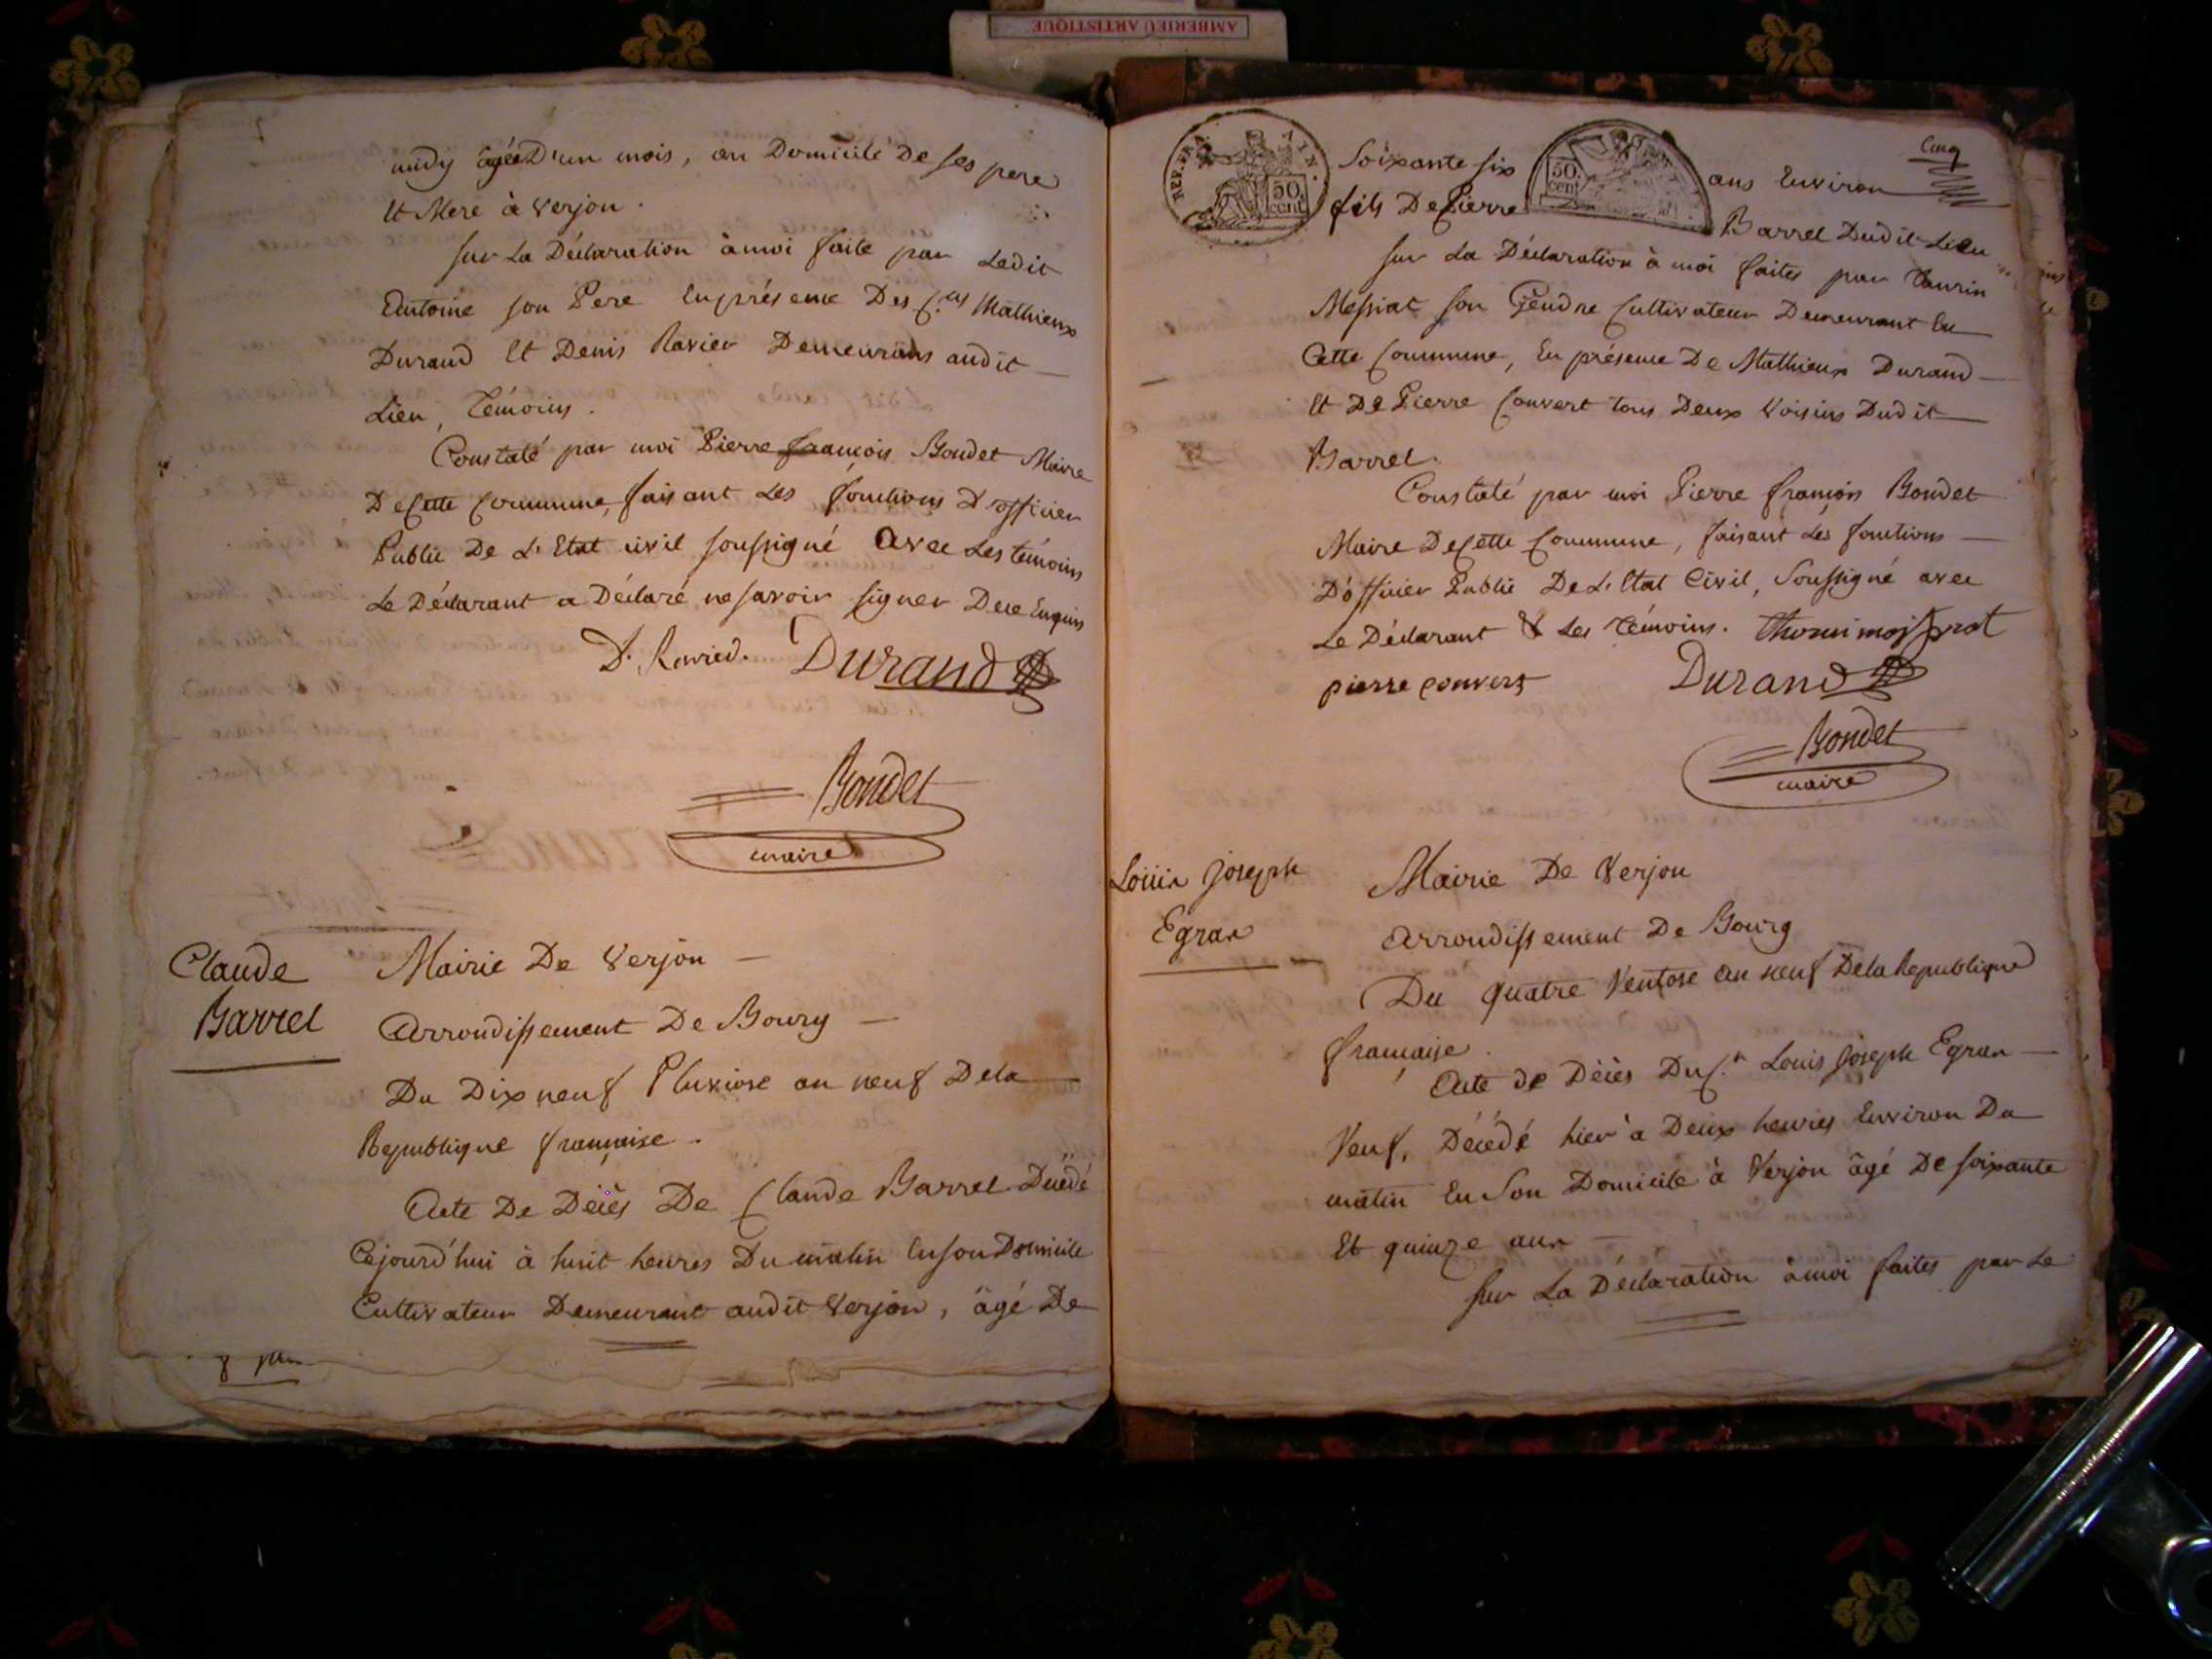 AMBERIEU ARTISTIQUE
midy âgée D'un mois, au Domicile De ses pere
Et Mere à Verjon.
sur La Déclaration à moi faite par Ledit
Antoine son Pere En présence Des C.ens Mathieux
Durand Et Denis Ravier Demeurans audit
Lieu, Témoins.
Constaté par moi Pierre françois Bondet Maire
De Cette Commune, faisant Les fonctions D'officier
Public De L'Etat civil soussigné avec Les témoins
Le Déclarant a Déclaré ne savoir signer De ce Enquis
D. Ravier. Durand
Bondet
maire
Claude
Barrel
Mairie De Verjon
Arrondissement De Bourg
Du Dix neuf Pluviose an neuf De la
Republique française.
Acte De Décès De Claude Barrel Décédé
Cejourd'hui à huit heures Du matin En son Domicile
Cultivateur Demeurant audit Verjon, âgé De
REP. FRA. AIN.
50. cent
50. cent
Cinq
Soixante six ans Environ
fils De Pierre Barrel Dudit Lieu
sur La Déclaration à moi faites par Taurin
Messiat son Gendre Cultivateur Demeurant En
Cette Commune, En présence De Mathieux Durand
Et De Pierre Convert tous Deux Voisins Dudit
Barrel.
Constaté par moi Pierre françois Bondet
Maire De Cette Commune, faisant Les fonctions
D'officier Public De L'Etat Civil, Soussigné avec
Le Déclarant & Les Témoins.
pierre convert Durand
Bondet
maire
Louis Joseph
Egran
Mairie De Verjon
Arrondissement De Bourg
Du quatre Ventose an neuf De la Republique
française.
Acte de Décès Du C.en Louis Joseph Egran
Veuf, Décédé hier à Deux heures Environ Du
matin En Son Domicile à Verjon âgé De soixante
Et quinze ans
sur La Déclaration à moi faites par Le